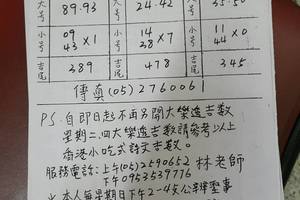 大号 89.93 大号 24.42 大号 35.50
小号 09 43 ×1 小号 14 38 ×7 小号 11 44 ×0
吉尾 389 吉尾 478 吉尾 345
傳真(05)2760061
PS.自即日起不再另開大樂透吉数
星期二.四大樂透吉数請參考以上
香港小吃式詩文吉数。
服務電話:上午(05)2590652 林老師
下午0953537776
本人每星期日下午2-4